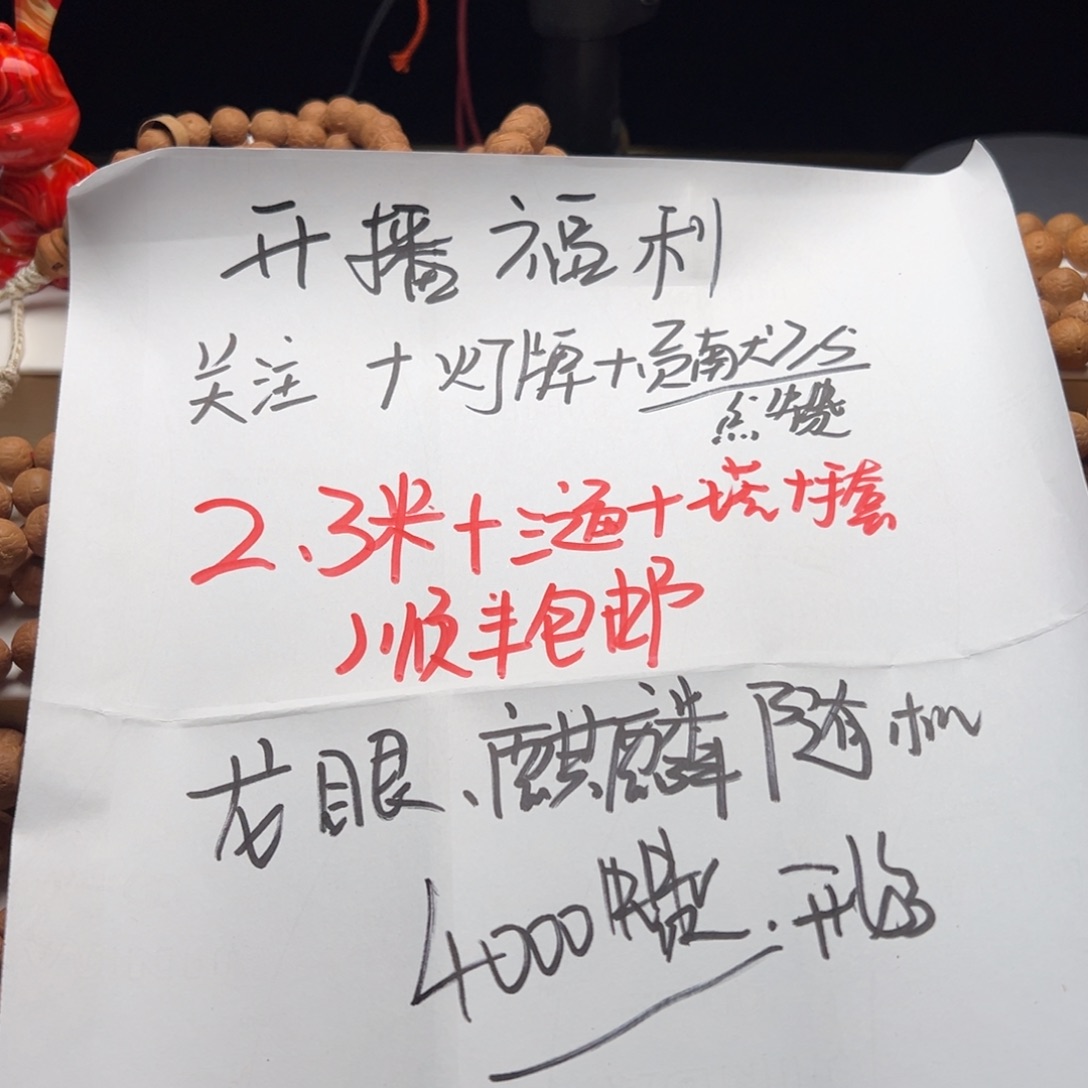 开播福利
关注+灯牌+贡献7/5
点赞
2.3米+三通+塔+手套
顺丰包邮
龙眼、麒麟随机
4000赞.开